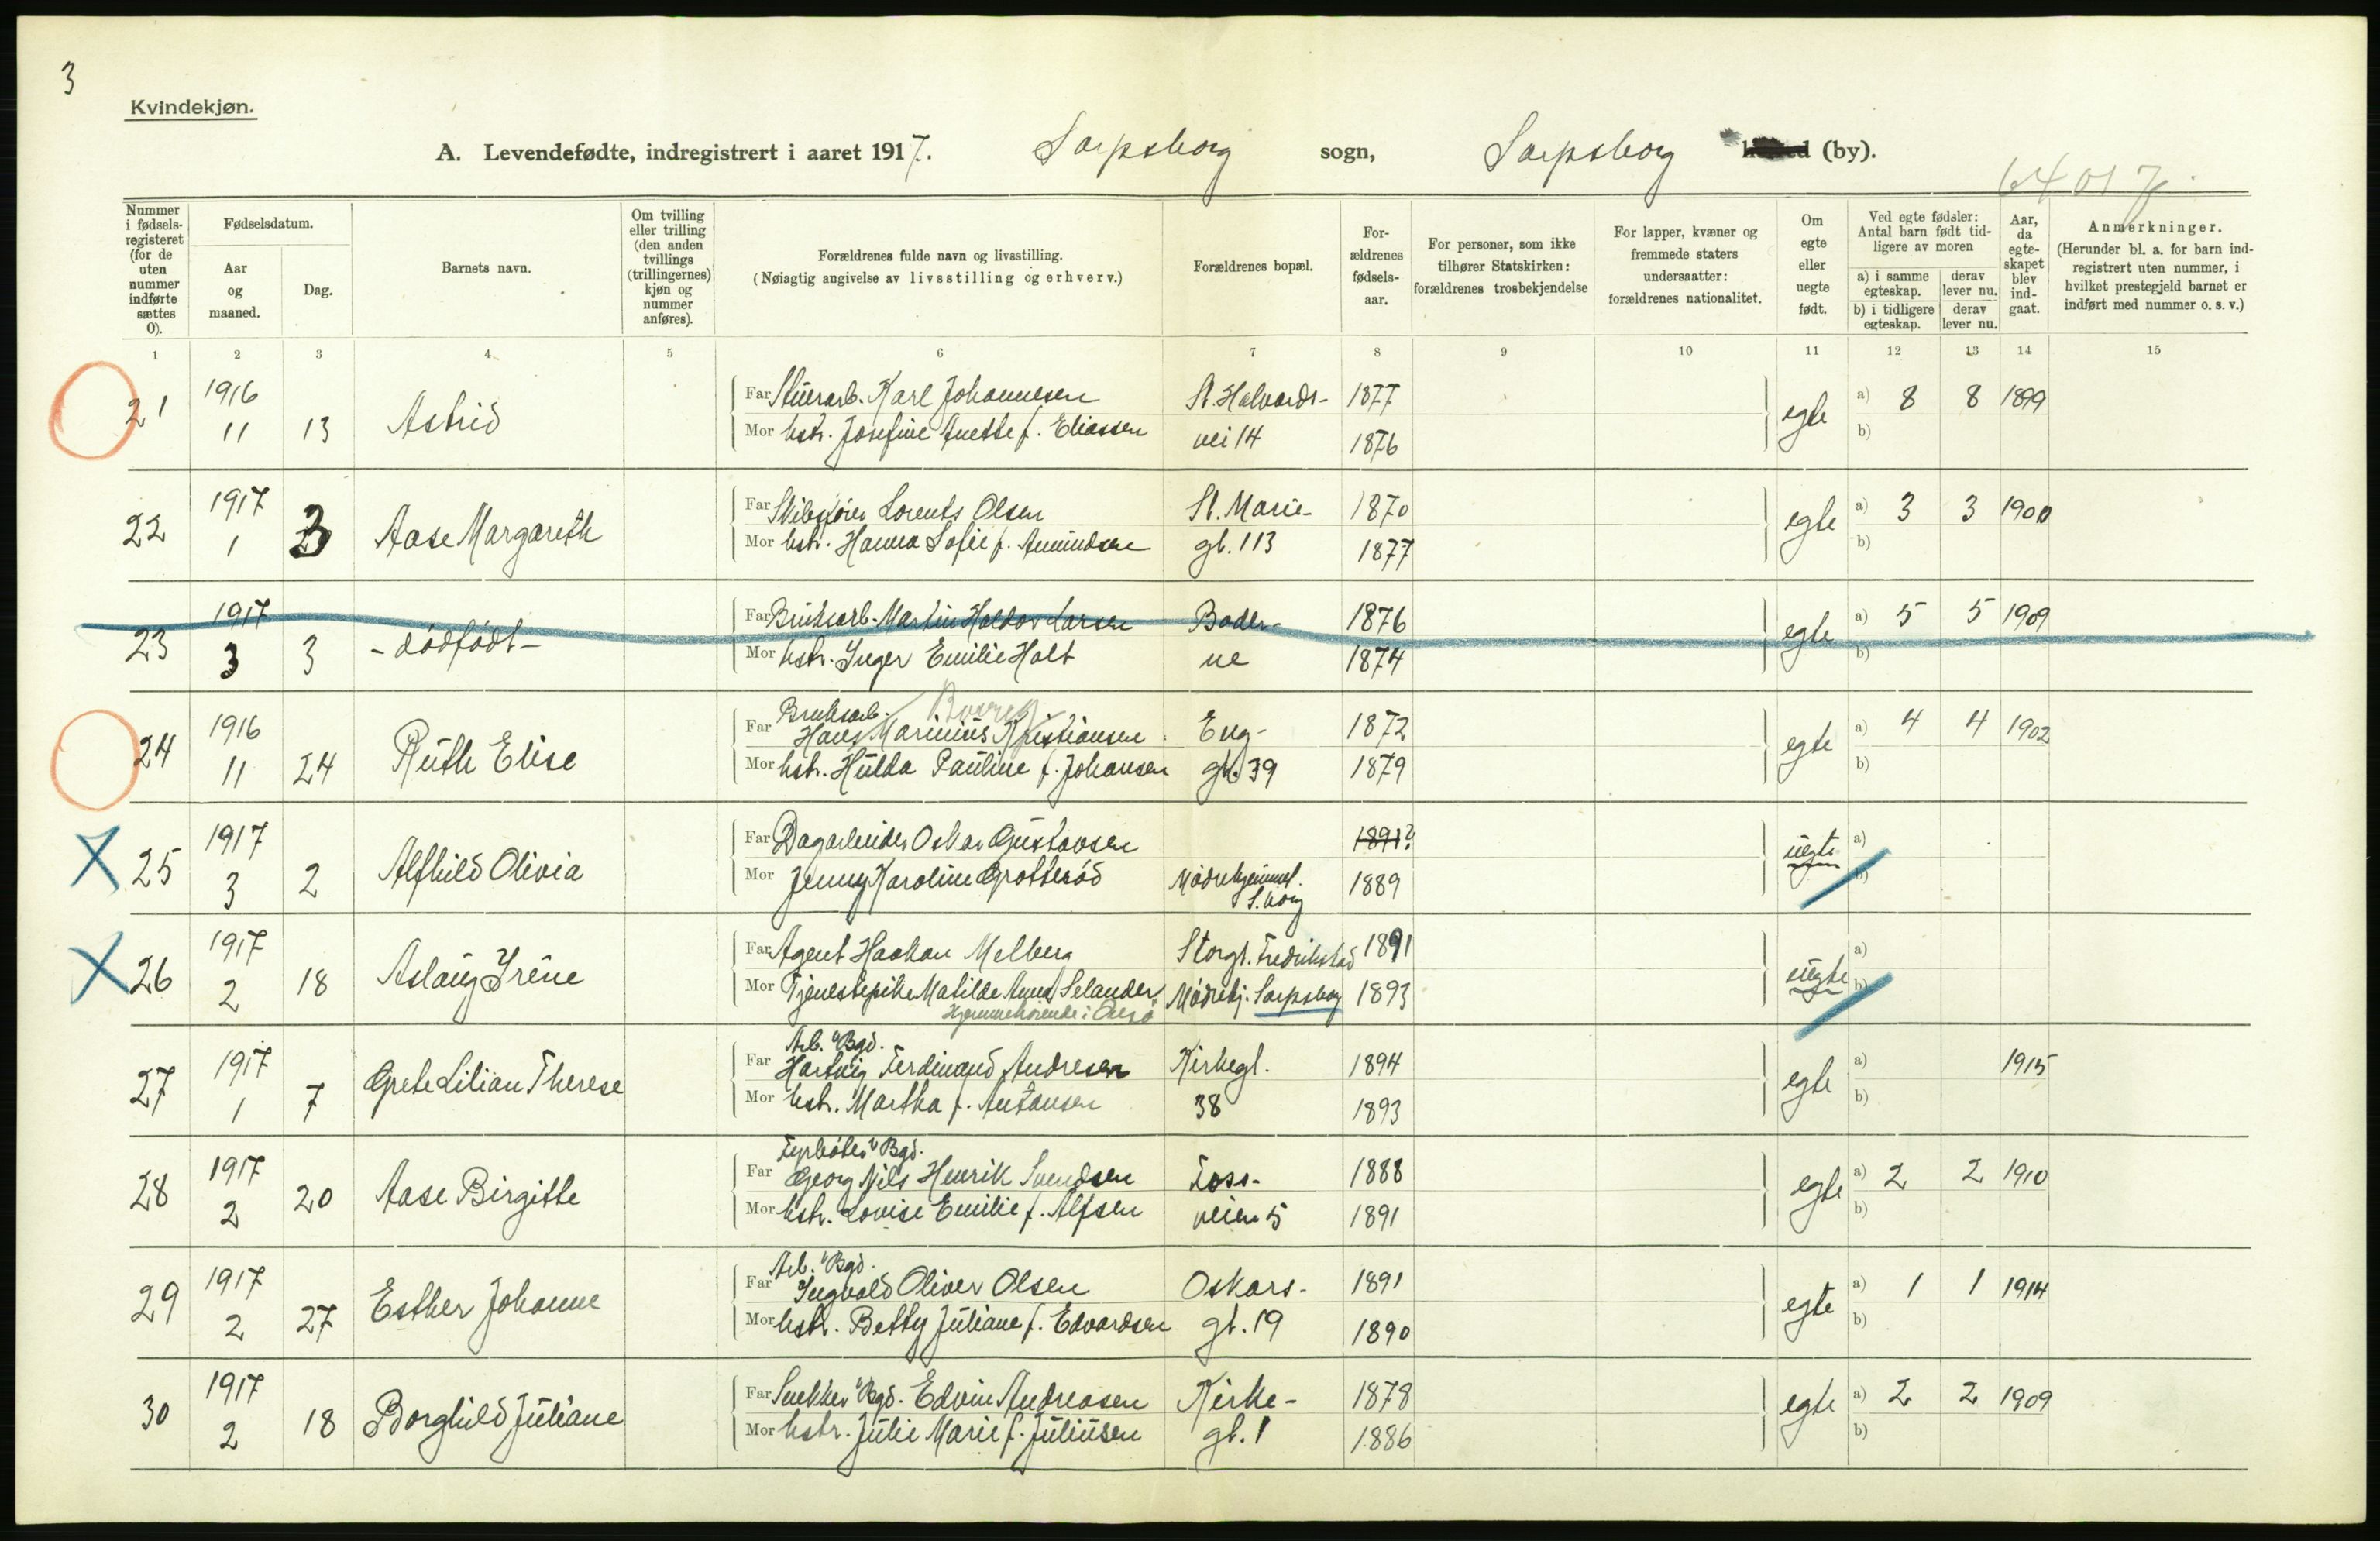 3
Kvindekjøn.
A. Levendefødte, indregistrert i aaret 1917. Sarpsborg sogn, Sarpsborg (by).
64017
Nummer i fødselsregisteret (for de uten nummer indførte sættes 0).
Fødselsdatum.
Aar og maaned.
Dag.
Barnets navn.
Om tvilling eller trilling (den anden tvillings (trillingernes) kjøn og nummer anføres).
Forældrenes fulde navn og livsstilling.
(Nøiagtig angivelse av livsstilling og erhverv.)
Forældrenes bopæl.
Forældrenes fødselsaar.
For personer, som ikke tilhører Statskirken: forældrenes trosbekjendelse
For lapper, kvæner og fremmede staters undersaatter: forældrenes nationalitet.
Om egte eller uegte født.
Ved egte fødsler: Antal barn født tidligere av moren
a) i samme egteskap. derav lever nu.
b) i tidligere egteskap. derav lever nu.
Aar, da egteskapet blev indgaat.
Anmerkninger.
(Herunder bl. a. for barn indregistrert uten nummer, i hvilket prestegjeld barnet er indført med nummer o. s. v.)
1 2 3 4 5 6 7 8 9 10 11 12 13 14 15
21 1916 11 13 Astrid
Far Stuerarb. Karl Johannesen St. Halvards- 1877 egte a) 8 8 1899
Mor hstr. Josefine Anette f. Eliassen vei 14 1876 b)
22 1917 1 3 Aase Margareth
Far Skibsfører Lorents Olsen St. Marie- 1870 egte a) 3 3 1900
Mor hstr. Hanna Sofie f. Amundsen gt. 113 1877 b)
23 1917 3 3 - dødfødt -
Far Bruksarb. Martin Haldor Larsen Boder- 1876 egte a) 5 5 1909
Mor hstr. Inger Emilie Holt ne 1874 b)
24 1916 11 24 Ruth Elise
Bruksarb. Borreg
Far Hans Marinius Kristiansen Eng- 1872 egte a) 4 4 1902
Mor hstr. Hulda Pauline f. Johansen gt. 39 1879 b)
25 1917 3 2 Alfhild Olivia
Far Dagarbeider Oskar Gustavsen 1891? uegte a)
Mor Jenny Karoline Grotterød Mødrehjemmet. S.borg 1889 b)
26 1917 2 18 Aslaug Irene
Far Agent Haakon Melberg Storgt. Fredrikstad 1891 uegte a)
Mor Tjenestepike Matilde Anna Selander Mødrehj. Sarpsborg 1893 b)
Hjemmehørende i Onsø
27 1917 1 7 Grete Lilian Therese
Arb. v/ Bgd.
Far Hartvig Ferdinand Andresen Kirkegt. 1894 egte a) 1915
Mor hstr. Martha f. Antonsen 38 1893 b)
28 1917 2 20 Aase Birgitte
Fyrbøter v/ Bgd.
Far Georg Nils Henrik Svendsen Foss- 1888 egte a) 2 2 1910
Mor hstr. Lovise Emilie f. Alfsen veien 5 1891 b)
29 1917 2 27 Esther Johanne
Arb. v/ Bgd.
Far Ingvald Oliver Olsen Oskars- 1891 egte a) 1 1 1914
Mor hstr. Betty Juliane f. Edvardsen gt. 19 1890 b)
30 1917 2 18 Borghild Juliane
Far Snekker v/ Bgd. Edvin Andreasen Kirke- 1878 egte a) 2 2 1909
Mor hstr. Julie Marie f. Juliusen gt. 1 1886 b)